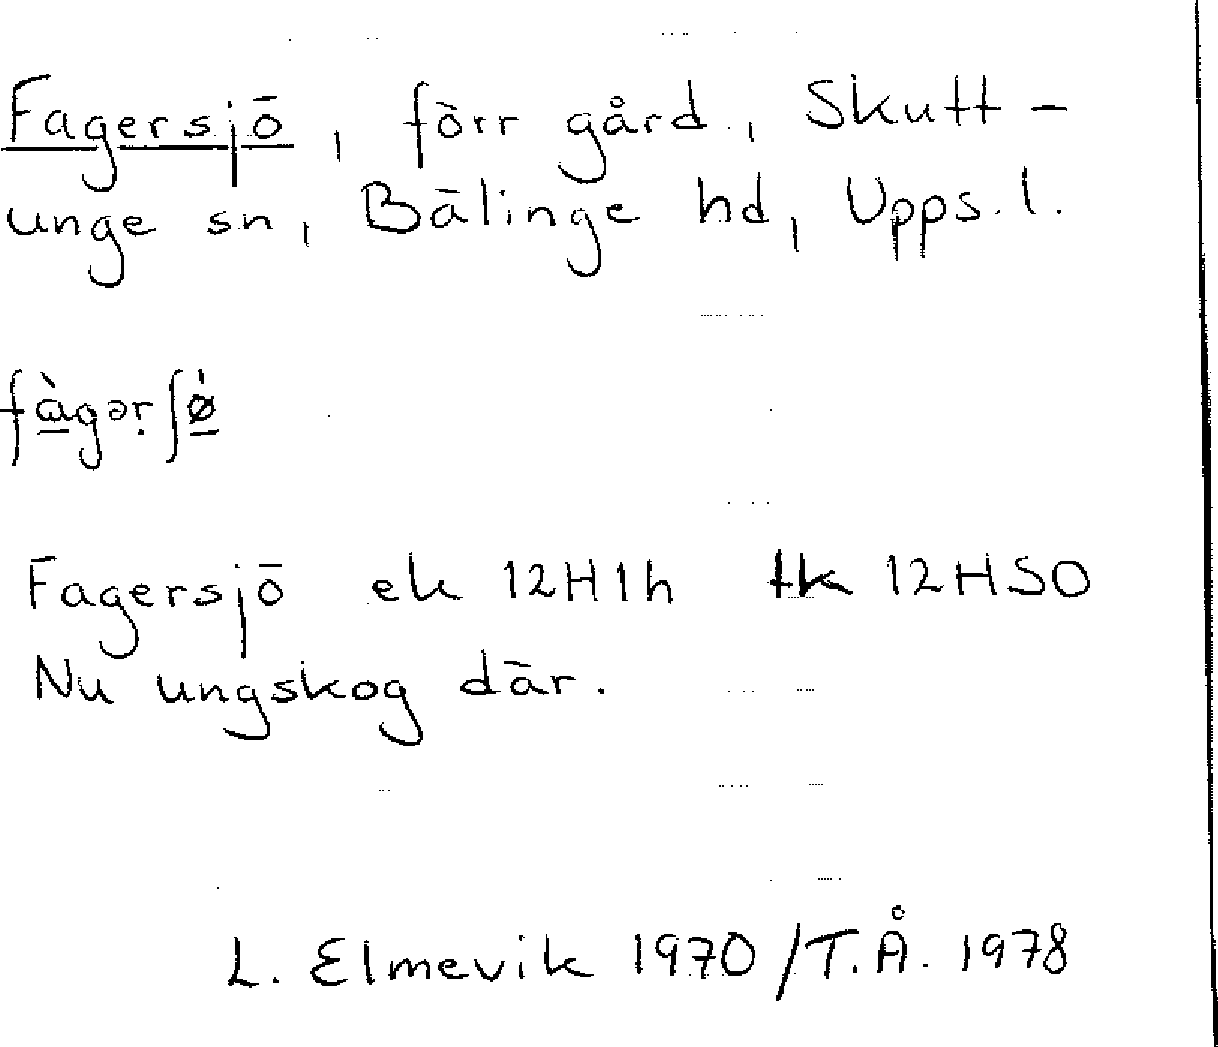 Fagersjö, förr gård, Skutt-
unge sn, Bälinge hd, Upps.l.
fàgəṛʃø̀
Fagersjö ek 12H1h tk 12HSO
Nu ungskog där.
L. Elmevik 1970/T.Å. 1978